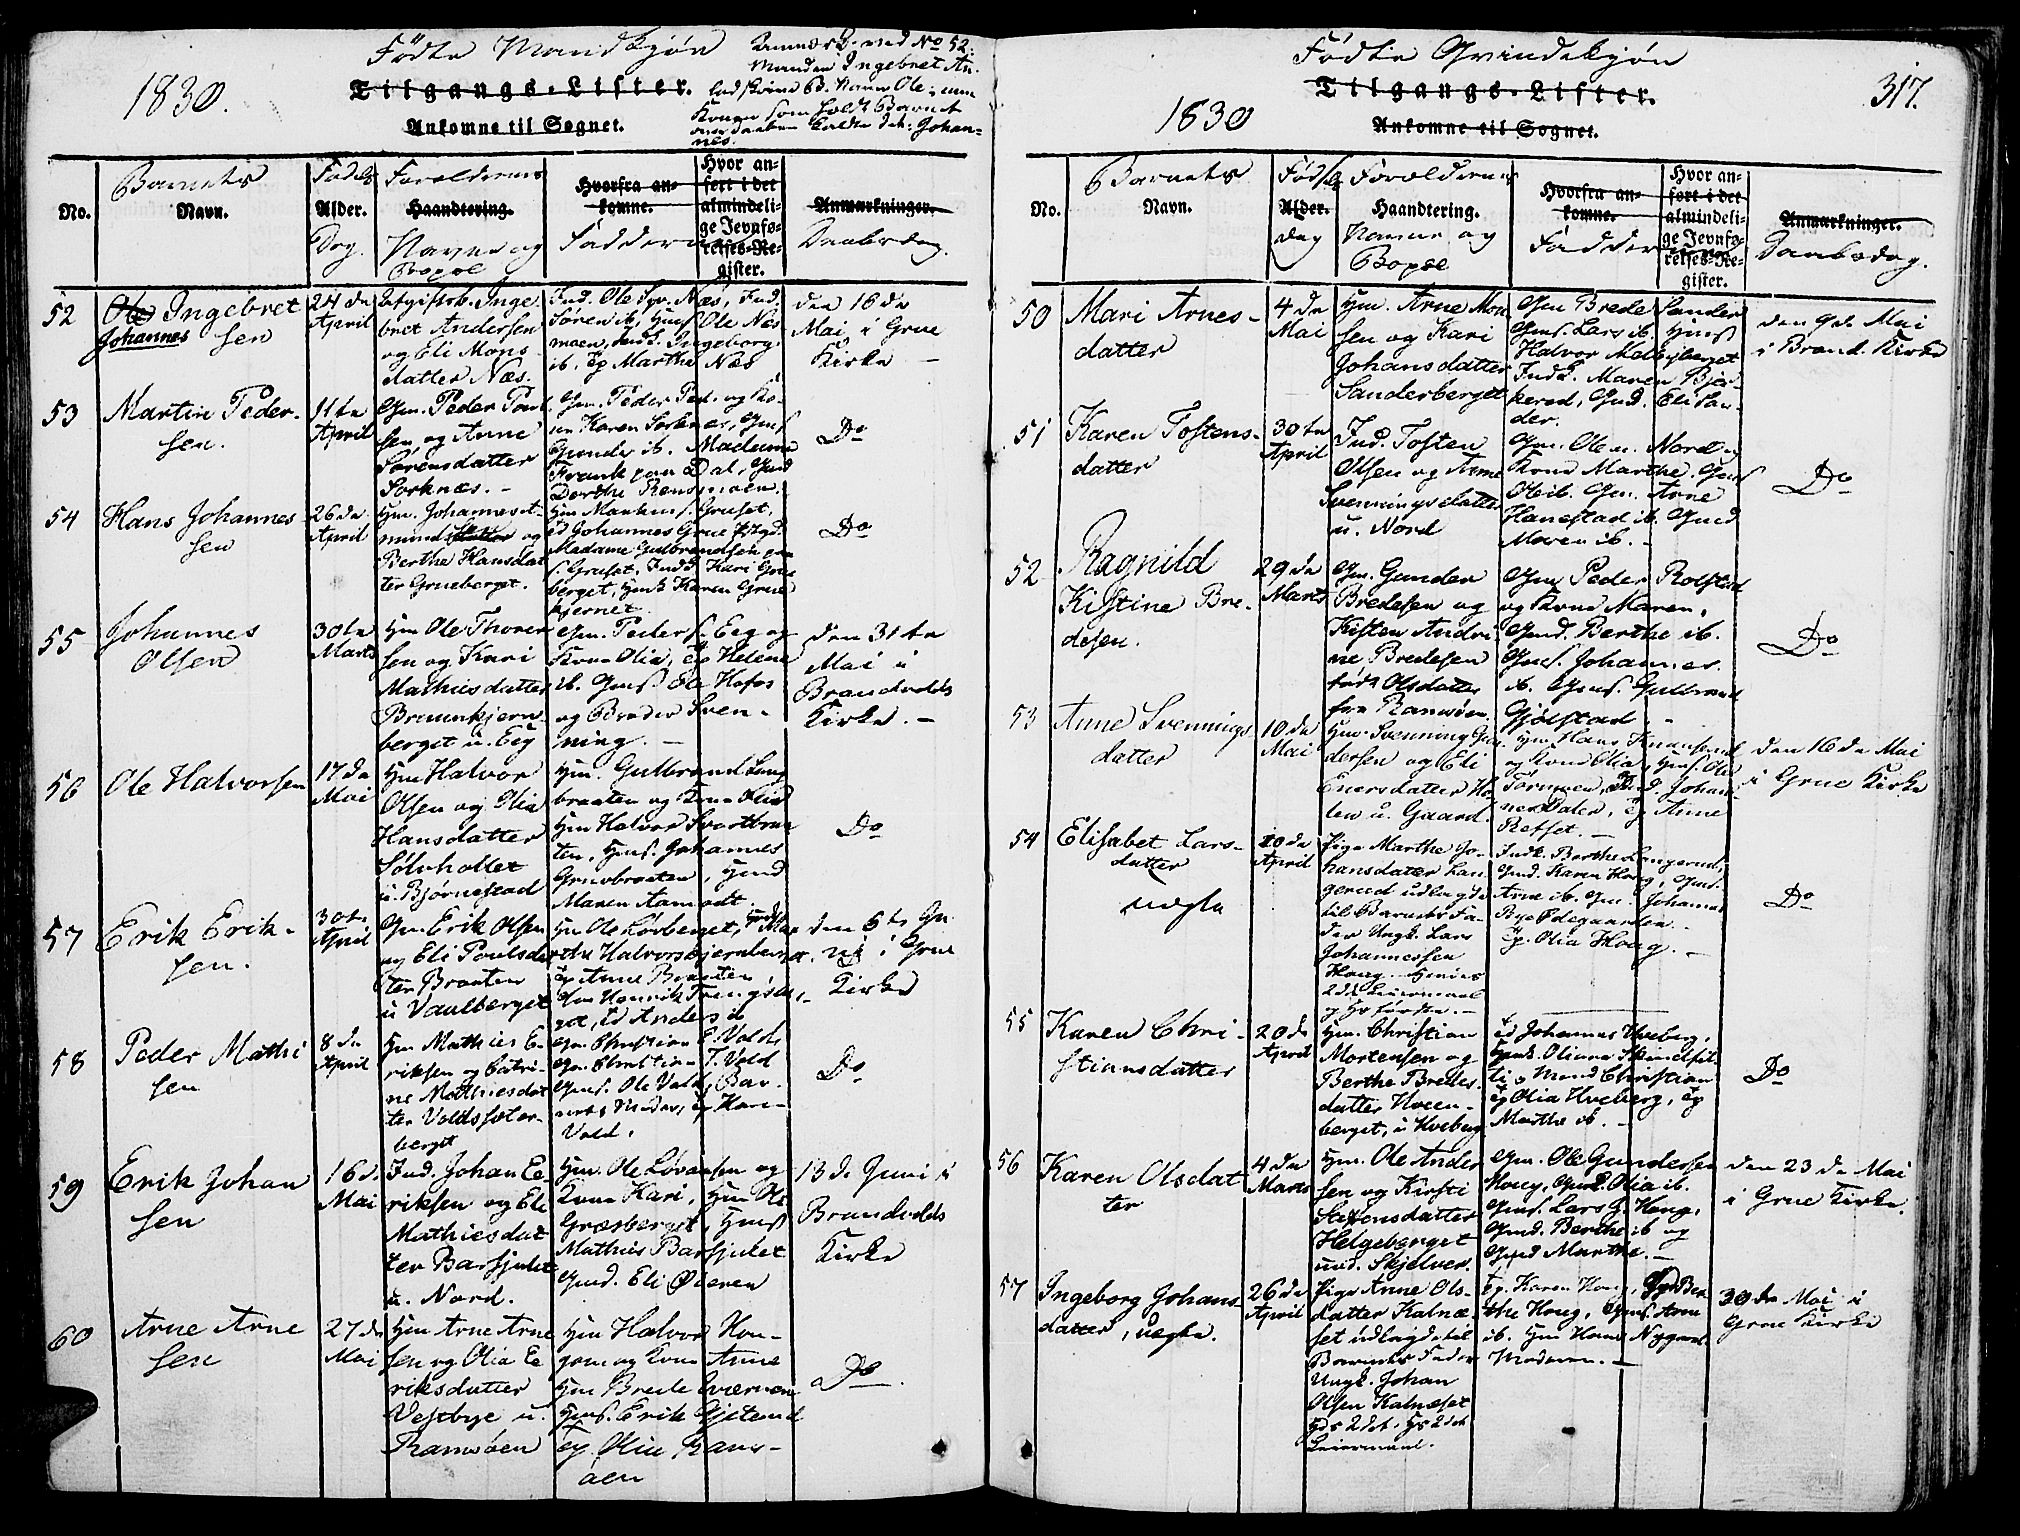 Fødte Mandkjøn
1830.
Tilgangs-Lister.
Ankomne til Sognet.
Anmærk. ved No 52:
Manden Ingebret An-
Navn Ole;
Konen som holdt Barnet
over Daaben kaldte det: Johan-
nes.
No.
Barnets
Navn.
Fødsels
Alder.
Dag.
Forældrenes
Haandtering.
Navne og
Bopæl
Hvorfra an-
komne.
Faddere
Hvor an-
ført i det
almindeli-
ge Jevnfø-
relses-Re-
gister.
Anmærkninger.
Daabsdag.
52
Ole Ingebret
Johannes sen
24de
April
Inge
bret Andersen
og Eli Mons-
datter Næs.
Ind. Ole Næs, Ind.
Søren ib, Ole Næs
moen, Ingeborg
ib. Ep Marthe Næs
den 16de
Mai i Grue
Kirke
53
Martin Peder-
sen.
11te
April
Gm. Peder Poul
sen og Anne
Sørensdatter
Sorknæs.
Gm. Peder Ped. og Ko-
ne Karen Sorknæs, Gms
Gunder ib. Madame
Frank paa Dal, Gmd
Dorthe Rensmoen.
Do
54
Hans Johannes
sen
26de
April
Hm. Johannes A-
mundsen og
Berthe Hansdat
ter Grueberget.
Hm Markus Gruset,
Johannes Grue
Madame Gulbrandsen
Gruset. Indk Kari Grue
berget, Hmk Karen Grue
kjernet.
Do
55
Johannes
Olsen
30te
Marts
Hm Ole Thorer
sen og Kari
Mathiesdatter
Bruunkjern-
berget u. Eeg
Gm. Peder S. Eeg og
Kone Olia, Ep Helene
ib. Gms Ole Hofos
og Broder Sven-
ning.
den 31te
Mai i
Brandvolds
Kirke.
56
Ole Halvorsen
17de
Mai
Hm Halvor
Olsen og Olia
Hansdatter
Sølvholtet
u. Bjørnestad
Hm. Gulbrand Lang
braaten og Kone Olia
Hm Halvor Svartbraa
ten, Hms. Johannes
Gruebraaten, Gmd
Maren Aamodt.
Do
57
Erik Erik-
sen.
30te
April
Gm. Erik Olsen
og Eli Poulsdat
ter Braaten
u Vaalberget
Hm Ole Løvberget,
Halvorskjernberget
Ep Anne Braaten
Henrik
get, Anders ib
den 6te Ju
ni i Grue
Kirke
58
Peder Mathi
sen
8de
April
Hm Mathies E-
riksen og Catri-
ne Mathiesdat
ter Voldssæter-
berget
Gm. Christian E. Vold,
Gm. Christian T. Vold
Gms. Ole Vold, Bar-
nets Moder, Ep Kari
Vold.
Do
59
Erik Johan
sen
16de
Mai
Ind. Johan E-
riksen og Eli
Mathiesdat
ter Barsjøket
u. Nord.
Hm. Ole Løvaasen og
Kone Kari, Hm Ole
Græsberget, Hms
Mathis Barsjøket
Gmd. Eli Øieren
13de Juni i
Brandvolds
Kirke
60
Arne Arne
sen
27de
Mai
Hm Arne Arne
sen og Olia E
riksdatter
Vestbye u.
Ramsøen
Hm Halvor Hou-
gom og Kone Anne
Hm Brede Kværnem
Hms. Erik Gjetund
Ep. Olia Rams-
øen
Do
Fødte Qvindekjøn
1830
Tilgangs-Lister.
Ankomne til Sognet.
317.
No.
Barnets
Navn.
Fødsels
Alder.
dag
Forældrenes
Haandtering.
Navne og
Bopæl
Hvorfra an-
komne.
Faddere
Hvor an-
ført i det
almindeli-
ge Jevnfø-
relses-Re-
gister.
Anmærkninger.
Daabsdag.
50
Mari Arnes-
datter
4de
Mai
Hm. Arne Mon
sen og Kari
Johansdatter
Sanderberget
Gm Brede Sander
Gms. Lars ib Hms
Halvor Melbyberget
Indk. Maren Bjer-
kerud, Gmd. Eli San-
der.
den 9de Mai
i Brand. Kirke
51
Karen Tostens-
datter
30te
April
Ind. Tosten
Olsen og Anne
Svenningsdatter
u. Nord
Gm. Ole u. Nord og
Kone Marthe. Gms
Ole ib. Gm. Arne
Hanestad ib. Gmd
Maren ib.
Do
52
Ragnild
Kistine Bre-
desen.
29de
Marts
Gm. Gunder
Bredesen og
Kisten Andri-
ne Bredesen
født Olsdatter
fra Ramsøen
Gm Peder Rolstad
og Kone Maren,
Gmd. Berthe ib.
Gms. Johannes
ib. Gms. Gulbrand
Gjølstad
Do
53
Anne Svennings
datter
10de
Mai
Hm. Svenning Gun
dersen og Eli
Enersdatter Ho
len u. Gaard.
Hm. Hans Knapperud
og Kone Olia, Hms. Ole
Tørmoen, Ind. Johan-
nes Dalen, Ep Anne
Retset.
den 16de Mai
i Grue Kirke
54
Elisabet Lars-
datter
uægte
20de
April
Pige Marthe Jo-
hansdatter Lan-
gerud udlagde
til Barnets Fa-
der Ungk. Lars
Johannessen
Houg. Hendes
2det Leiermaal
og Hs første.
Indk. Berthe Langerud,
Gmd. Karen Houg, Gms.
Arne ib. Gm. Johannes
Bye Ødegaarden.
Ep. Olia Houg.
Do
55
Karen Chri-
stiansdatter
20de
April
Hm. Christian
Mortensen og
Berthe Bredes-
datter Hveen-
berget, u Hveberg
Johannes Hveberg,
Hmk. Oliana Skandsfit-
li, Mand Christian
Ep Olia Hveberg, Ep
Marthe ib.
Do
56
Karen Olsdat
ter
4de
Marts
Hm. Ole Ander
sen og Kirsti
Steffensdatter
Helgeberget
und. Skjelver.
Gm. Ole Gundersen
Houg, Gmk. Olia ib.
Gms. Lars G. Houg,
Gmd. Berthe ib og
Gmd Marthe.
den 23de Mai
i Grue Kirke.
57
Ingeborg Johans-
datter, uægte.
26de
April
Pige Anne Ols-
datter Kalnæ-
set udlagde til
Barnets Fader
Ungk. Johan
Olsen Kalnæset
Hds 2det, Hs 2det
Leiermaal.
Ep. Karen Houg, Ber
the Houg, Gms Arne
ib. Hm Hans Nygaard
Moderen.
30de Mai i
Grue Kirke